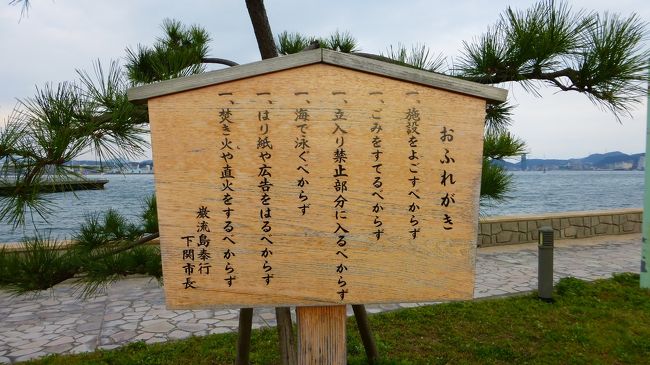 おふれがき
一、施設をよごすべからず
一、ごみをすてるべからず
一、立入り禁止部分に入るべからず
一、海で泳ぐべからず
一、はり紙や広告をはるべからず
一、焚き火や直火をするべからず
巌流島奉行
下関市長